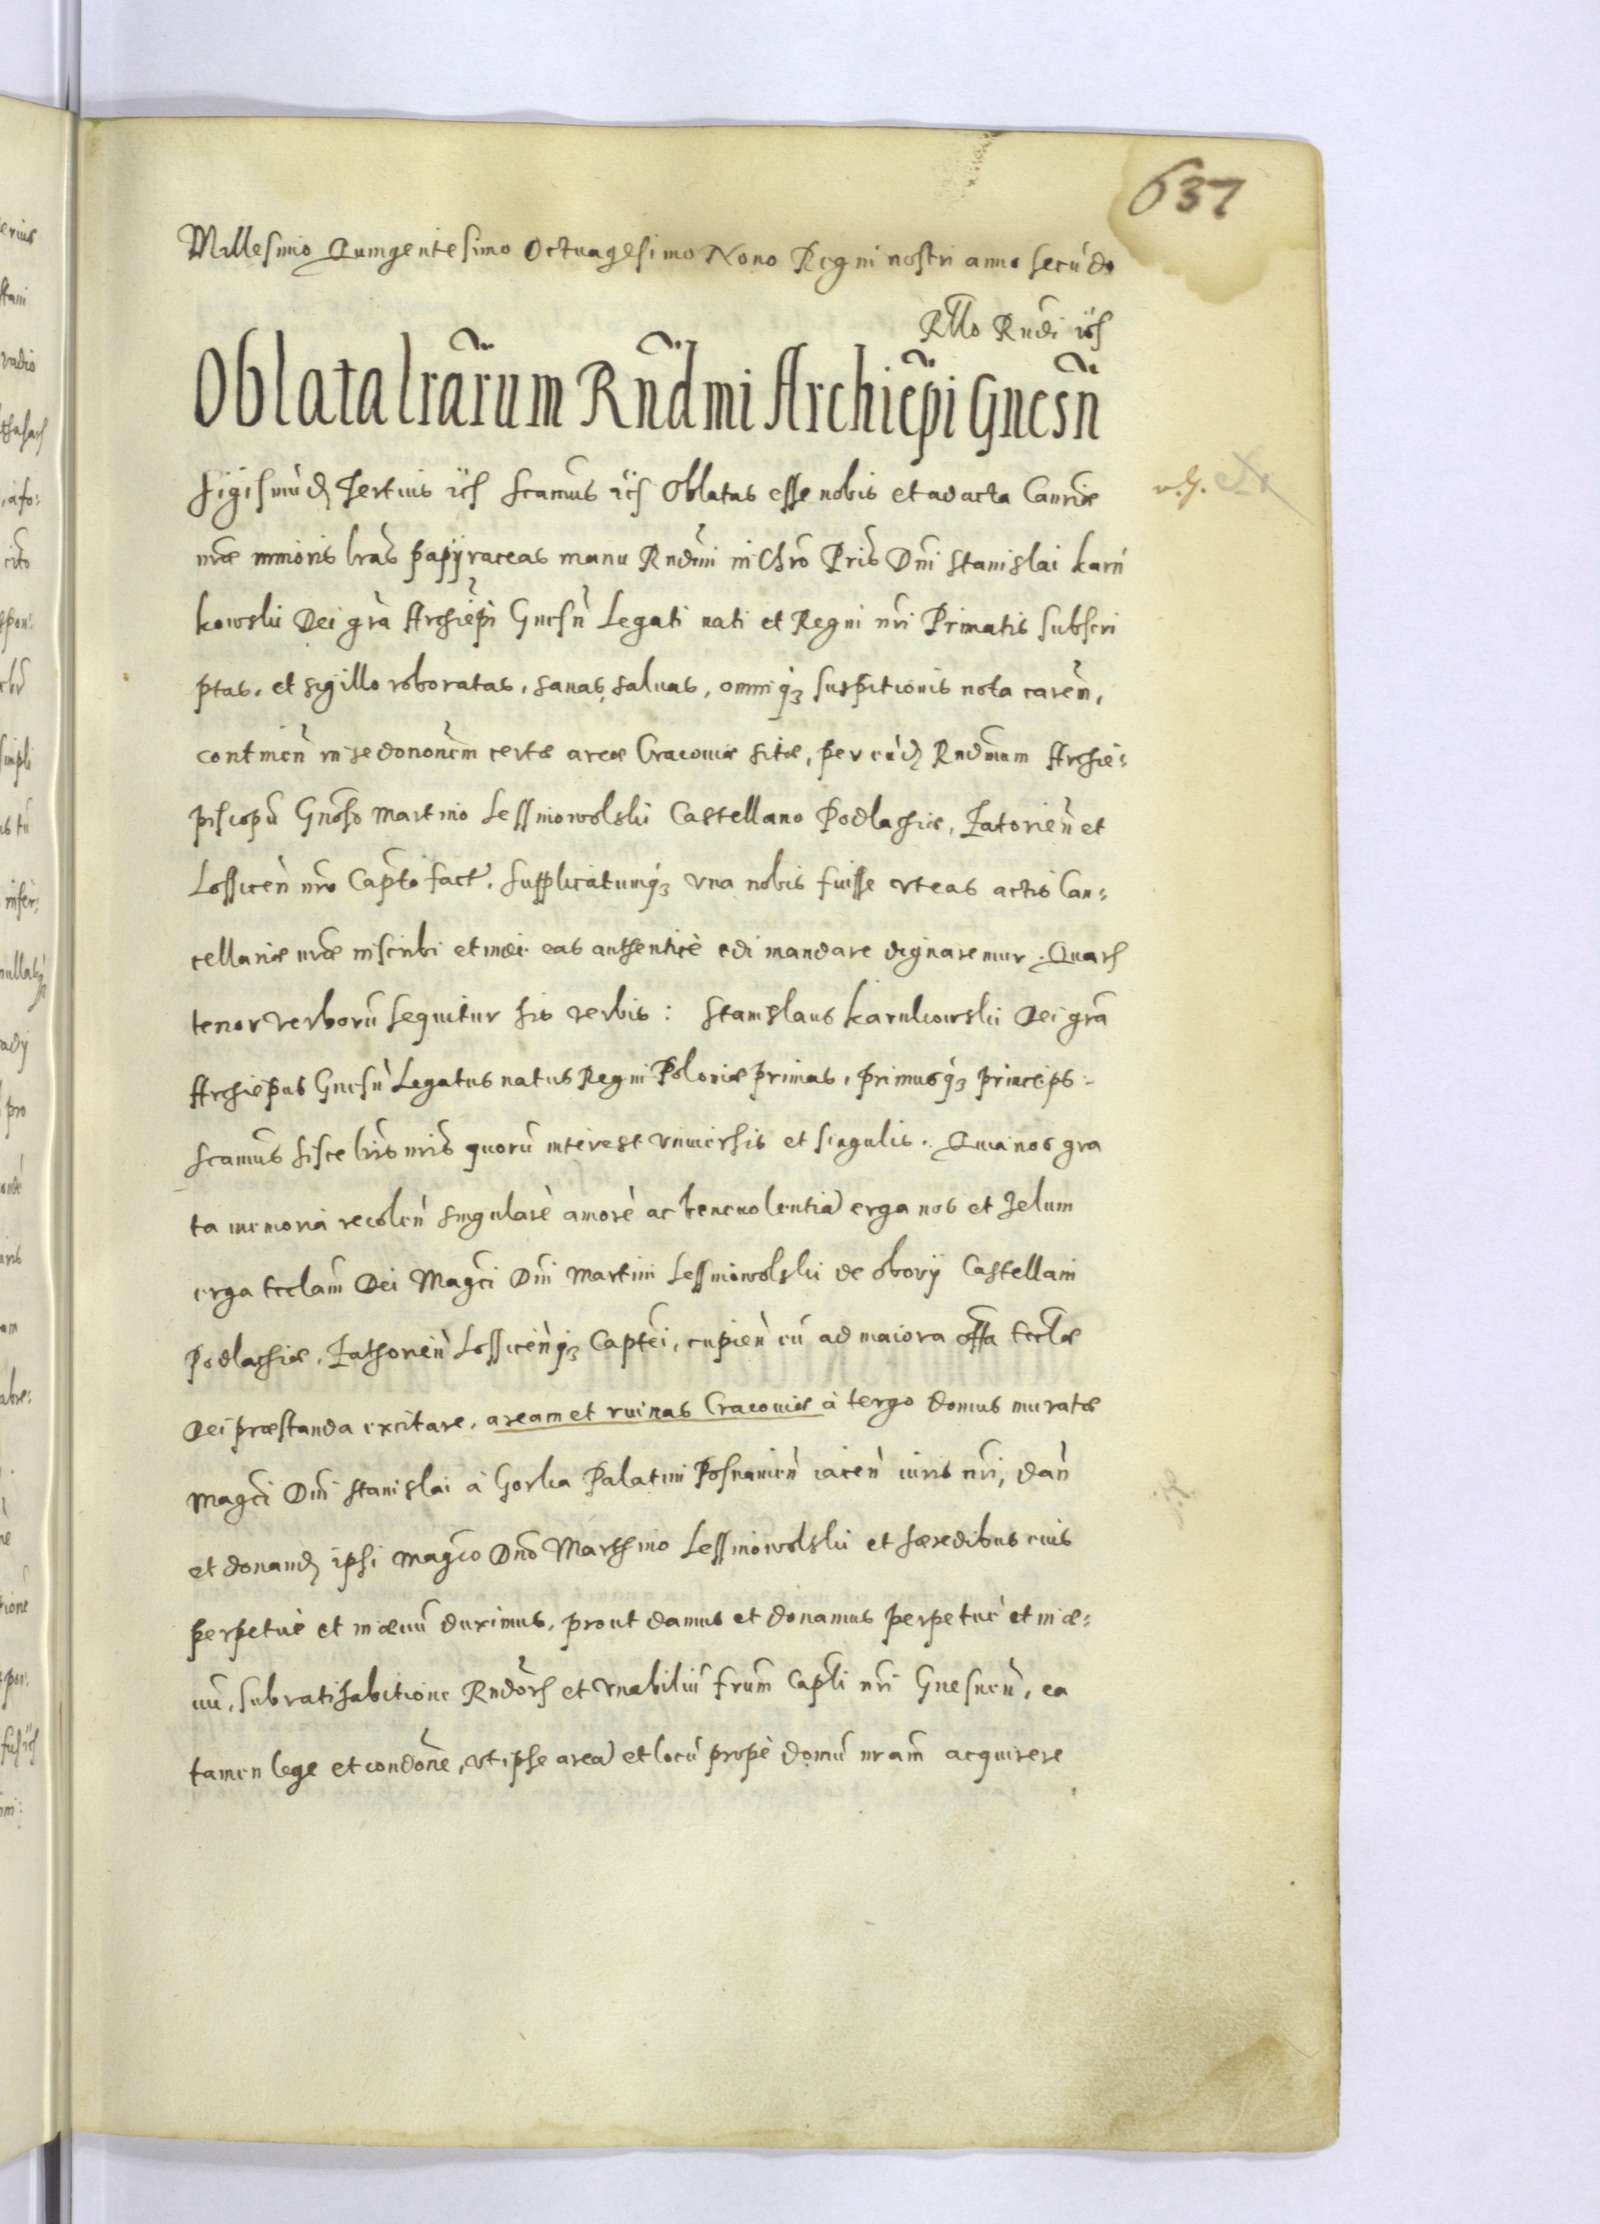 637
Millesimo Quingentesimo Octuagesimo Nono Regni nostri anno secũdo
Rllo Rndi
Oblata lrarum Rndmi Archiepi Gnesn
Sigismũd Tertius Scamus Oblatas esse nobis et ad acta Canriæ
nræ minoris lras papÿraceas manu Rndmi in Chro Pris Dni Stanislai Karn
kowski Dei gra Archiepi Gnesn Legati nati et Regni nri Primatis subscri
ptas, et sigillo roboratas, sanas, saluas, omniq3 suspitionis nota caren,
continen in se dononem certæ areæ Cracouiæ sitæ, per eud Rndmum Archie:
piscopũ Gnoso Martino Lessniowolski Castellano Podlachiæ, Zatorien et
Lossicen nro Capto fact. Supplicatumq3 vna nobis fuisse vt eas actis Can:
cellariæ nræ inscribi et inde eas authenticè edi mandare dignaremur. Quar
tenor verborũ sequitur his verbis: Stanislaus Karnkowski Dei gra
Archiepus Gnesn Legatus natus Regni Poloniæ primas, primusq3 princeps.
Scamus hisce lris nris quorũ interest vniuersis et singulis. Quia nos gra
ta memoria recolen singularẽ amorẽ ac beneuolentia erga nos et zelum
erga Ecclam Dei Magci Dni Martini Lessniowolski de oborÿ Castellani
Podlachiæ, Zathorien Lossicenq3 Captei, cupien eũ ad maiora offa Ecclæ
Dei præstanda excitare, aream et ruinas Cracouiæ à tergo domus muratæ
Magci Dni Stanislai à Gorka Palatini Posnanien iacen iuris nri, dan
et donand ipsi Magco Dno Marthino Lessniowolski et hæredibus eius
perpetuè et in æuũ duximus, prout damus et donamus perpetuè et in æ:
uũ, sub ratihabitione Rndor et vnabiliũ frum Capli nri Gnesnen, ea
tamen lege et condone, vt ipse area et locũ propè domũ nram acquirere